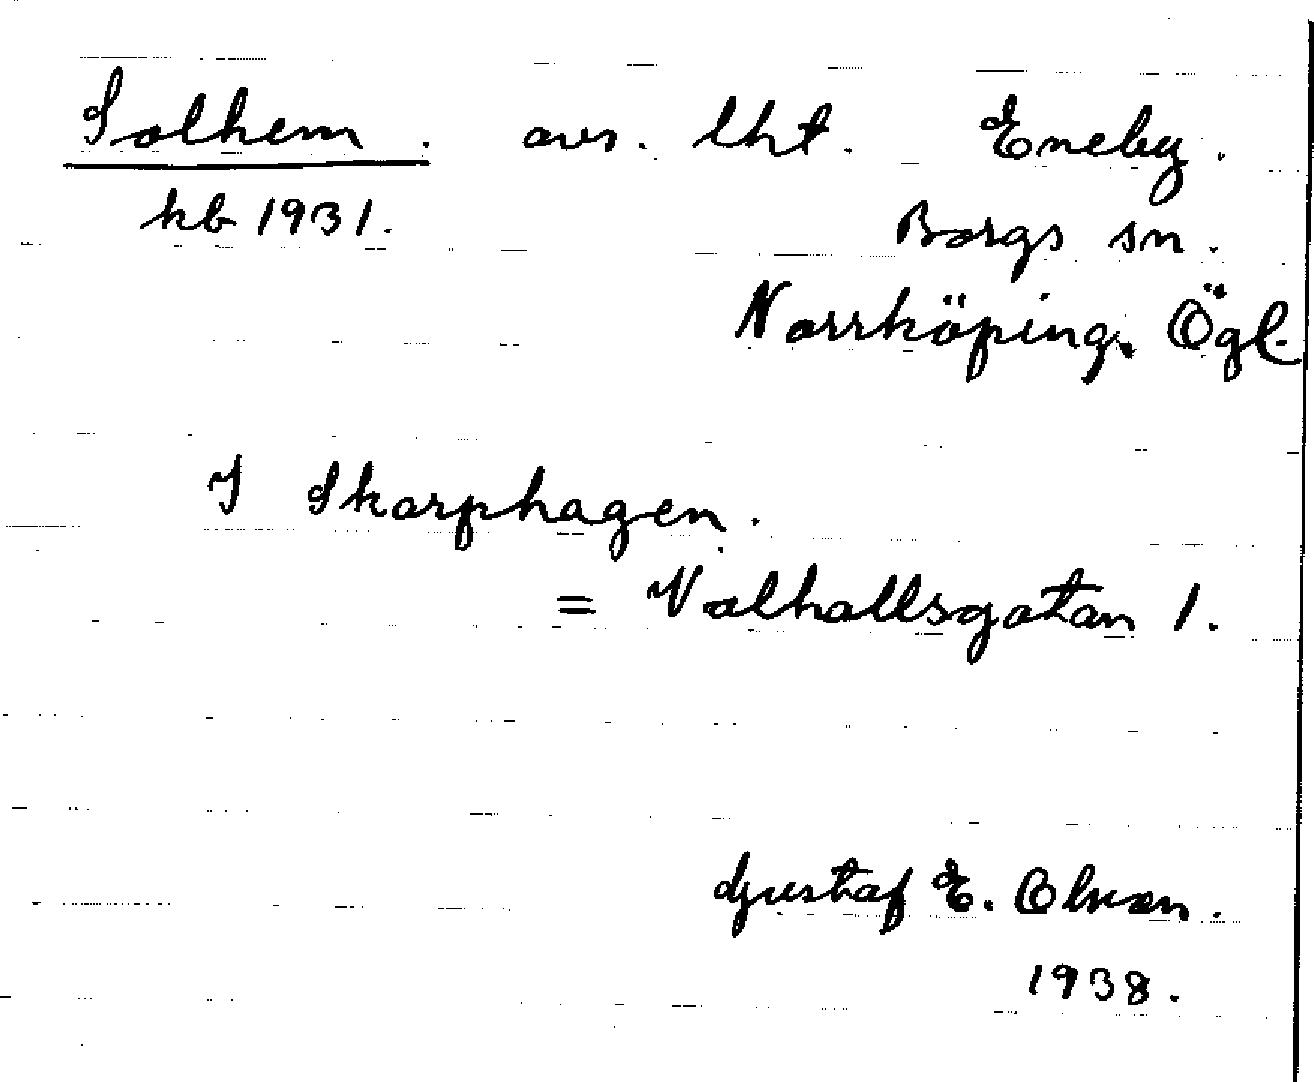 Solhem. avs. lht. Eneby.
kb 1931. Borgs sn.
Norrköping. Ögl.
I Skarphagen.
= Valhallsgatan 1.
Gustaf E. Olsson.
1938.